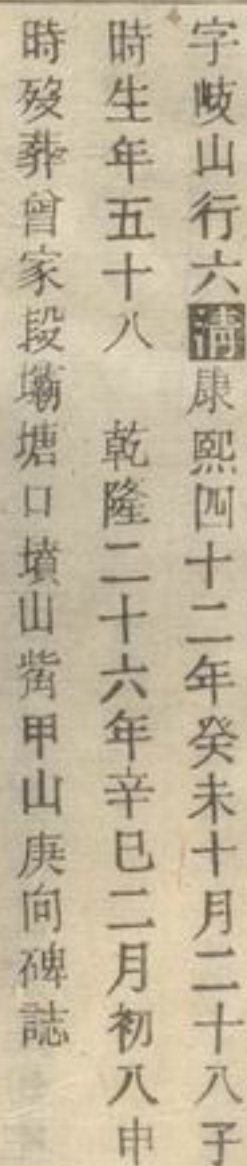 字岐山行六清康熙四十二年癸未十月二十八子
時生年五十八 乾隆二十六年辛巳二月初八申
時歿葬曾家段壩塘口墳山觜甲山庚向碑誌